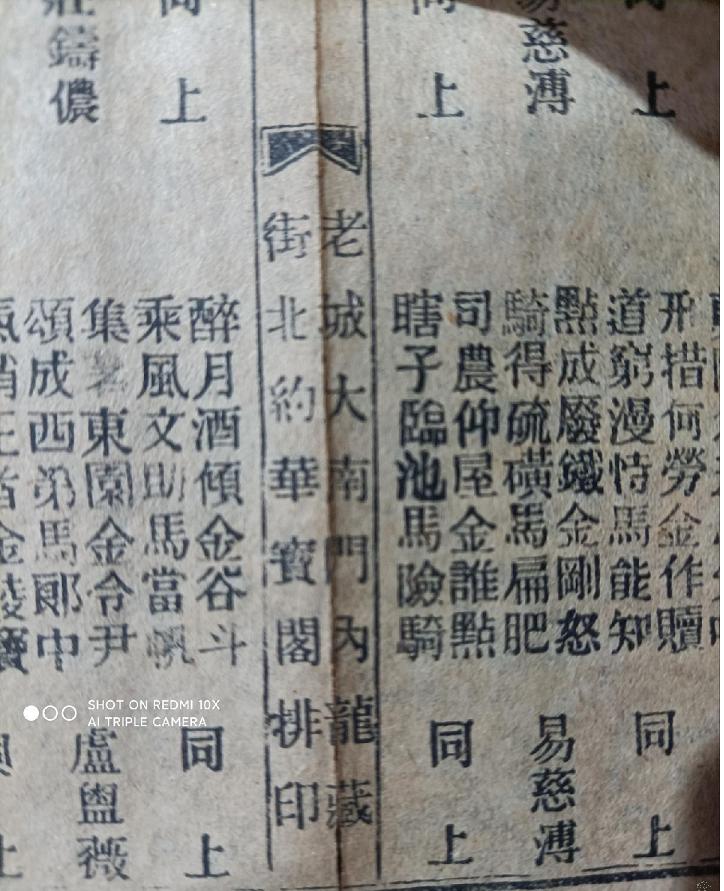 上
易慈溥
上
刑措何勞金作贖
道窮漫恃馬能知
同上
點成廢鐵金剛怒
騎得硫磺馬扁肥
易慈溥
司農仰屋金誰點
瞎子臨池馬險騎
同上
老城大南門內龍藏
街北約華寶閣排印
上
鑄儂
醉月酒傾金谷斗
乘風文助馬當帆
同上
集東園金令尹
頌成西第馬郎中
盧盥薇
上
SHOT ON REDMI 10X
AI TRIPLE CAMERA